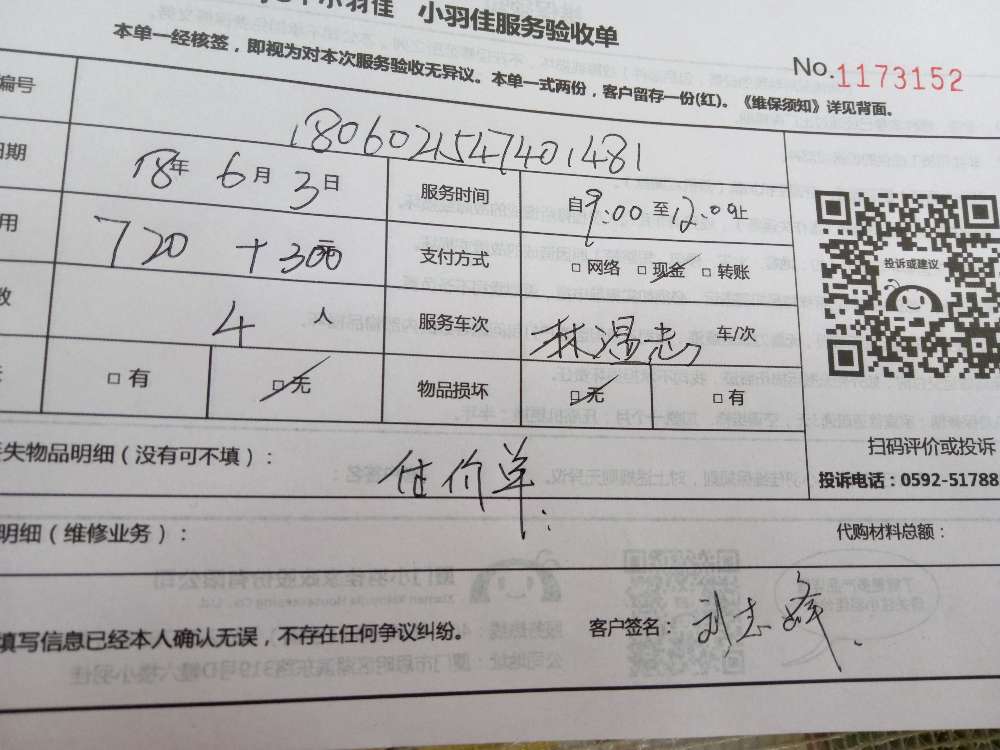 小羽佳服务验收单
本单一经核签，即视为对本次服务验收无异议。本单一式两份，客户留存一份(红)。《维保须知》详见背面。
No.1173152
编号 1806021547401481
日期 18年 6月 3日 服务时间 自9:00至12:00止
用 720 + 300元 支付方式 □ 网络 □ 现金 □ 转账
数 4 人 服务车次 林温志 车/次
□ 有 □ 无 物品损坏 □ 无 □ 有
投诉或建议
扫码评价或投诉
投诉电话：0592-51788
失物品明细（没有可不填）： 估价单.
明细（维修业务）： 代购材料总额：
填写信息已经本人确认无误，不存在任何争议纠纷。 客户签名：